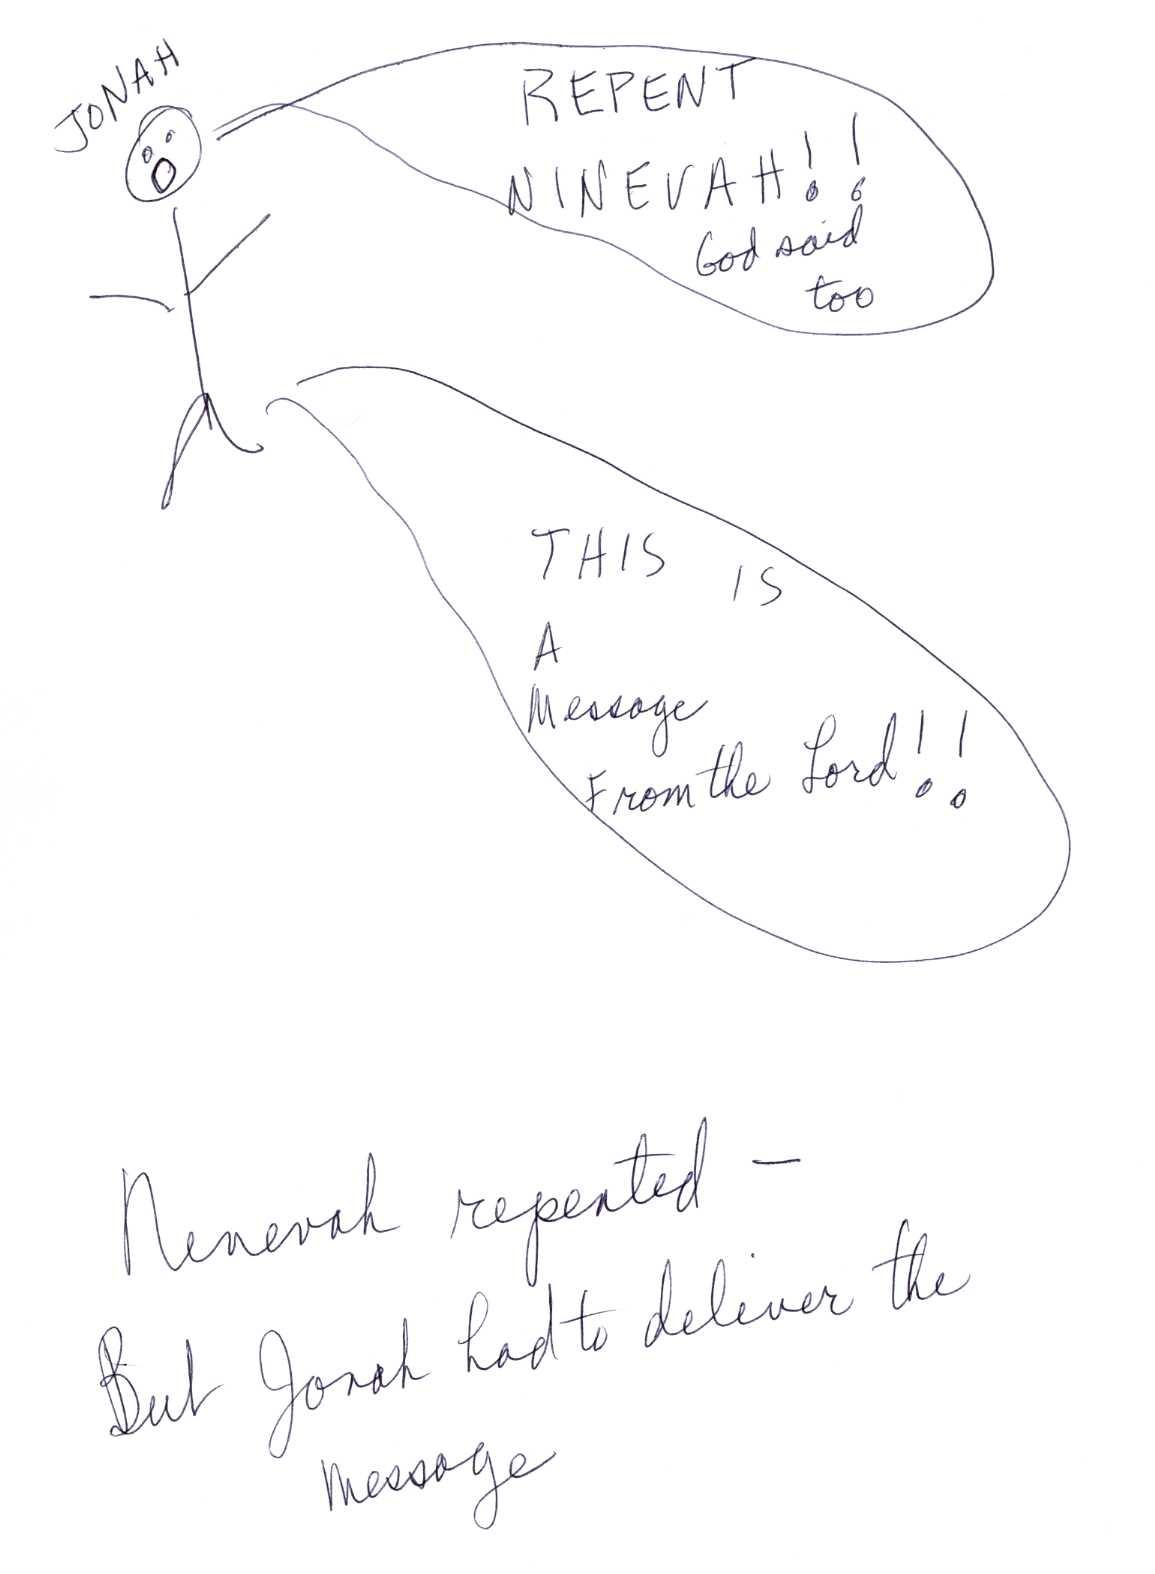 JONAH
REPENT
NINEVAH!!
God said
too
THIS IS
A
Message
From the Lord!!
Nenevah repented –
But Jonah had to deliver the
message